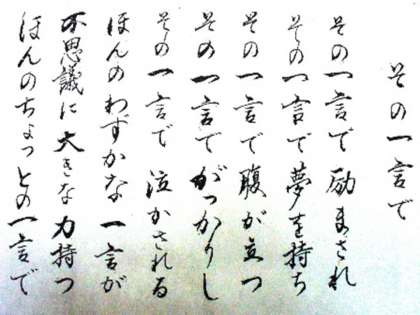 その一言で
その一言で励まされ
その一言で夢を持ち
その一言で腹が立つ
その一言でがっかりし
その一言で泣かされる
ほんのわずかな一言が
不思議に大きな力持つ
ほんのちょっとの一言で